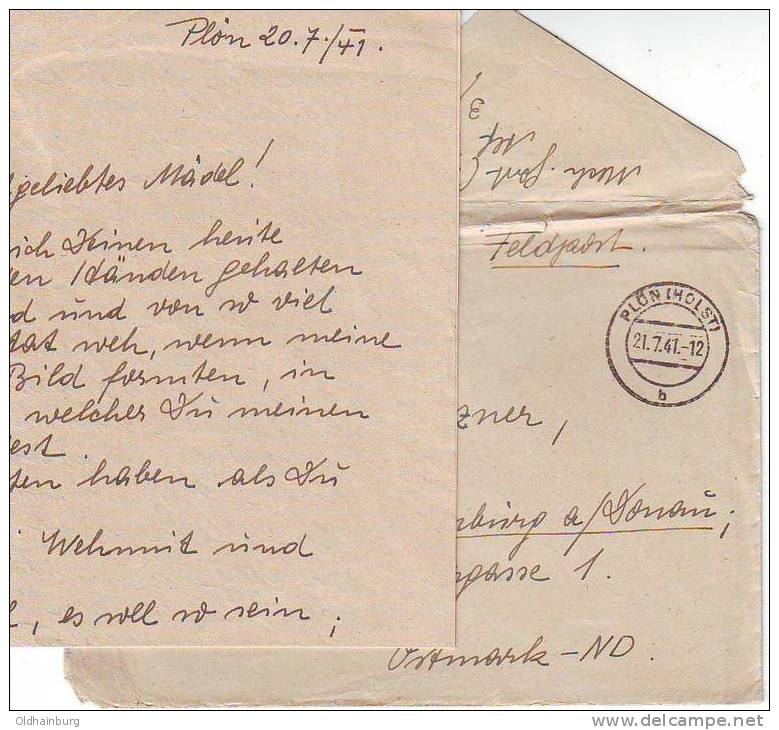 Plön 20.7./41.
geliebtes Mädel!
ich Deinen heute
en Händen gehalten
d und von so viel
tat weh, wenn meine
Bild formten, in
welcher Du meinen
est
ten haben als Du
Wehmut und
, es soll so sein,
Feldpost.
PLÖN (HOLST)
21.7.41.-12
b
zner,
nburg a/Donau;
gasse 1.
Ostmark - ND.
Oldhainburg
delcampe.net